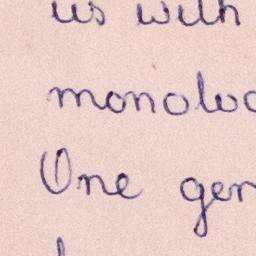 us with
monoloc
One gen